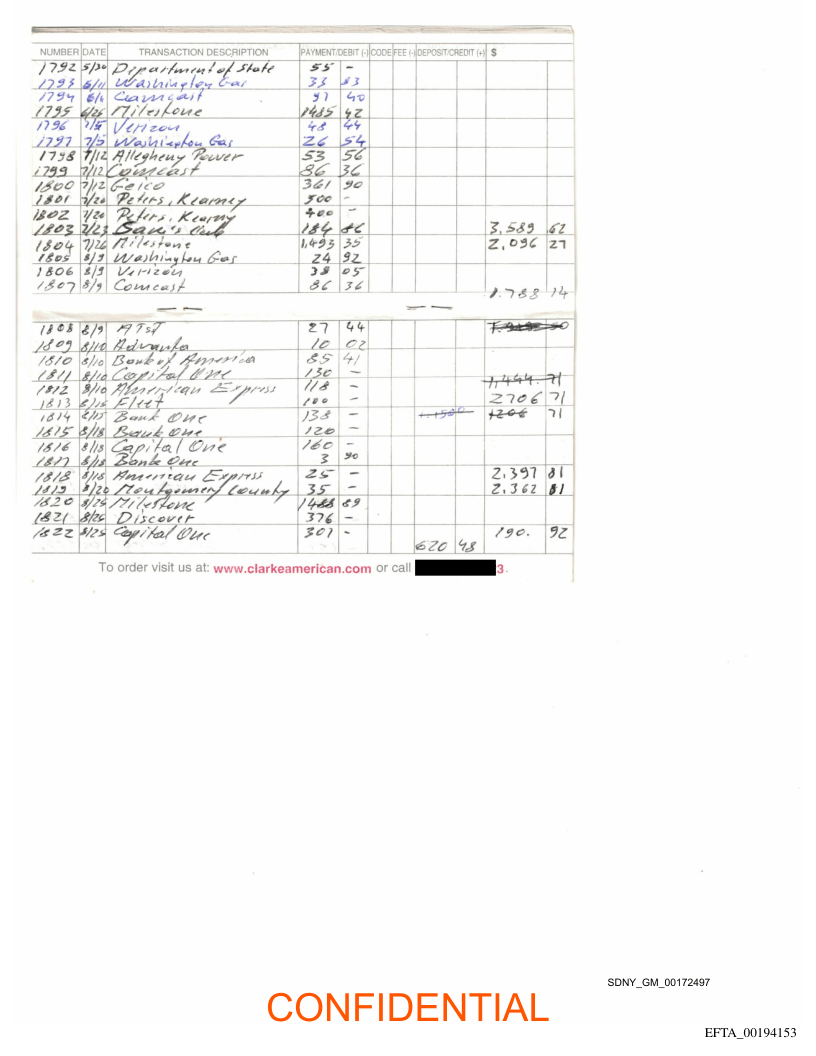 NUMBER DATE TRANSACTION DESCRIPTION PAYMENT/DEBIT (-) CODE FEE (-) DEPOSIT/CREDIT (+) $
1792 5/30 Department of State 55 -
1793 6/11 Washington Gas 33 83
1794 6/11 Comcast 91 40
1795 6/26 Milestone 1485 42
1796 7/5 Verizon 48 44
1797 7/5 Washington Gas 26 54
1798 7/12 Allegheny Power 53 56
1799 7/12 Comcast 86 36
1800 7/12 Geico 361 90
1801 7/20 Peters, Kearney 500 -
1802 7/20 Peters, Kearny 400 -
1803 7/23 Sam's Club 184 86 3,589 62
1804 7/26 Milestone 1,493 35 2,096 27
1805 8/9 Washington Gas 24 92
1806 8/9 Verizon 38 05
1807 8/9 Comcast 86 36 1.788 14
1808 8/9 AT&T 27 44
1809 8/10 Advanta 10 02
1810 8/10 Bank of America 85 41
1811 8/10 Capital One 130 -
1812 8/10 American Express 118 - 1,444. 71
1813 8/16 Fleet 100 - 2706 71
1814 8/15 Bank One 138 - 1206 71
1815 8/18 Bank One 120 -
1816 8/18 Capital One 160 -
1817 8/18 Bank One 3 90
1818 8/18 American Express 25 - 2,397 81
1819 8/20 Montgomery County 35 - 2,362 81
1820 8/25 Milestone 1488 89
1821 8/26 Discover 376 -
1822 8/25 Capital One 307 - 190. 92
620 48
To order visit us at: www.clarkeamerican.com or call 3.
SDNY_GM_00172497
CONFIDENTIAL
EFTA_00194153